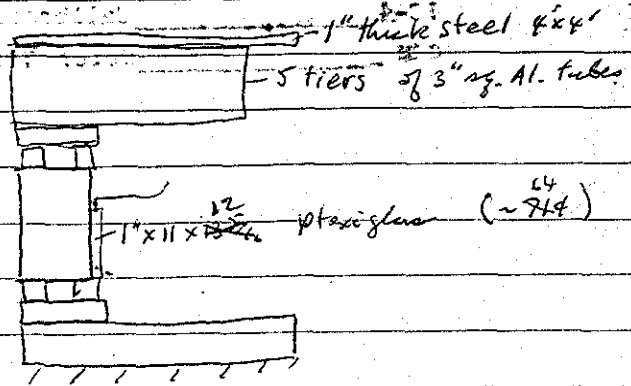 1" thick steel 4'x4'
5 tiers of 3" sq. Al. tubes
12
1" x 11 x plexiglass (~ 64)